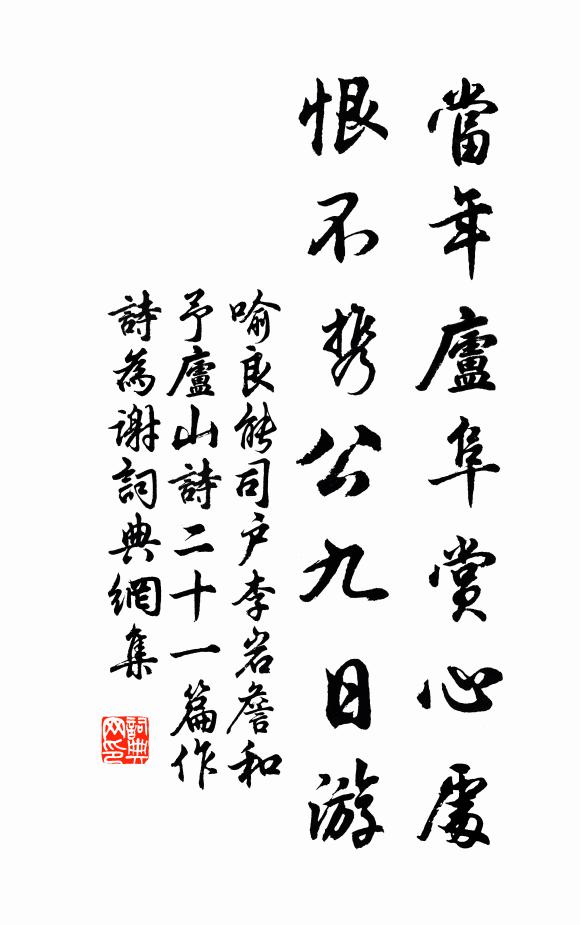 當年廬阜賞心處
恨不携公九日游
喻良能司户李岩詹和
予廬山詩二十一篇作
詩為谢詞典網集
詞典
网印